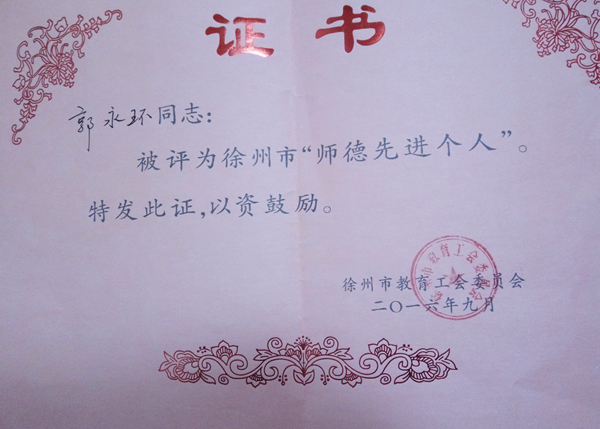 证书
郭永环同志：
被评为徐州市“师德先进个人”。
特发此证，以资鼓励。
徐州市教育工会委员会
二〇一六年九月